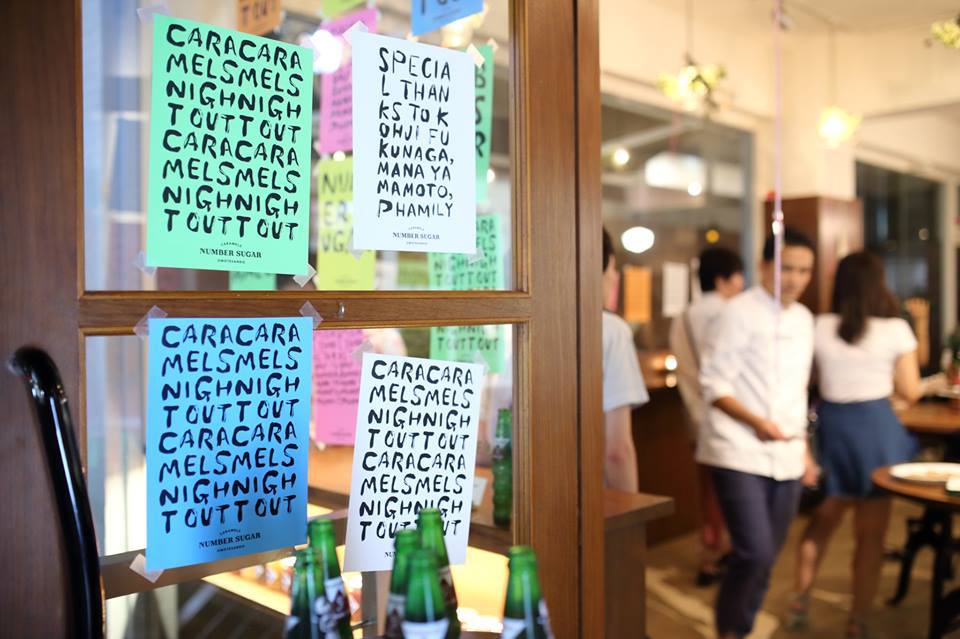 CARACARA
MELSMELS
NIGHNIGH
TOUTTOUT
CARACARA
MELSMELS
NIGHNIGH
TOUTTOUT
CARAMELS
NUMBER SUGAR
OMOTESANDO
SPECIA
L THAN
KS TO K
OHJI FU
KUNAGA,
MANA YA
MAMOTO,
PHAMILY
CARAMELS
NUMBER SUGAR
OMOTESANDO
CARACARA
MELSMELS
NIGHNIGH
TOUTTOUT
CARACARA
MELSMELS
NIGHNIGH
TOUTTOUT
CARAMELS
NUMBER SUGAR
OMOTESANDO
CARACARA
MELSMELS
NIGHNIGH
TOUTTOUT
CARACARA
MELSMELS
NIGHNIGH
TOUTTOUT